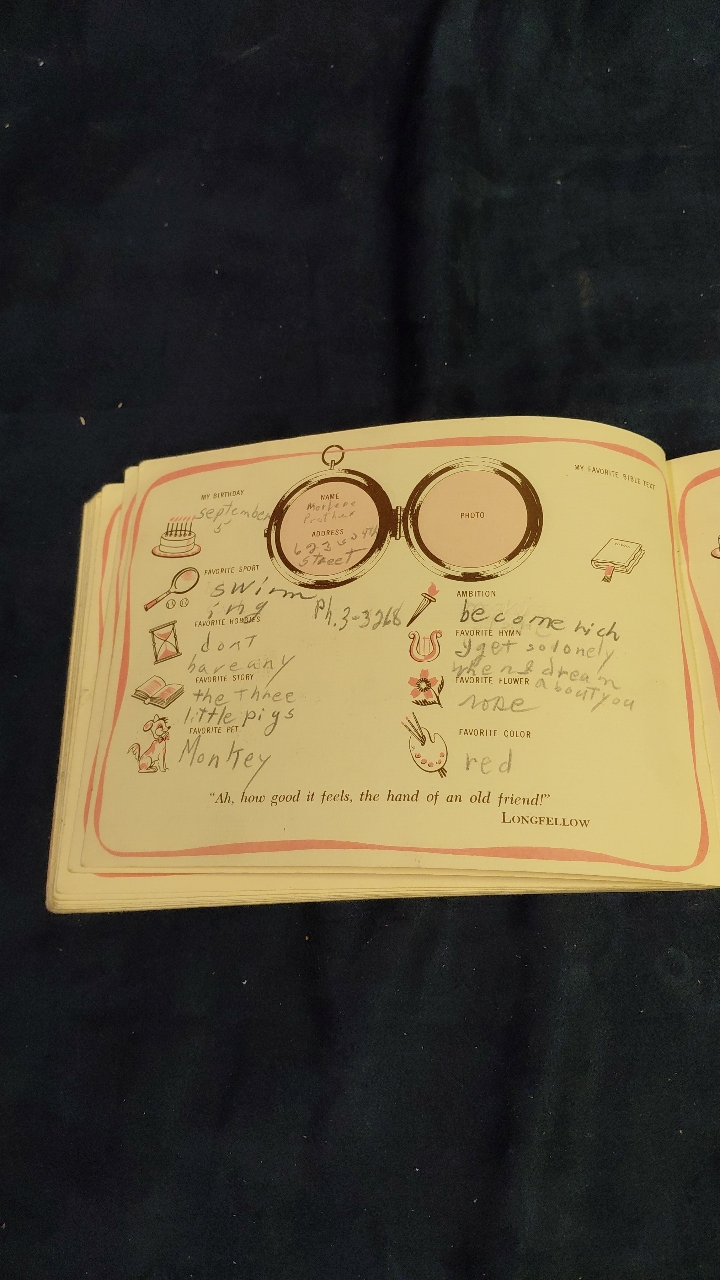 MY BIRTHDAY
september
5
NAME
Marlene
Prather
ADDRESS
street
PHOTO
MY FAVORITE BIBLE TEXT
FAVORITE SPORT
swimm
ing
Ph. 3-3268
FAVORITE HOBBIES
dont
have any
FAVORITE STORY
the Three
little pigs
FAVORITE PET
Monkey
AMBITION
become rich
FAVORITE HYMN
I get so lonely
when I dream
about you
FAVORITE FLOWER
rose
FAVORITE COLOR
red
"Ah, how good it feels, the hand of an old friend!"
LONGFELLOW